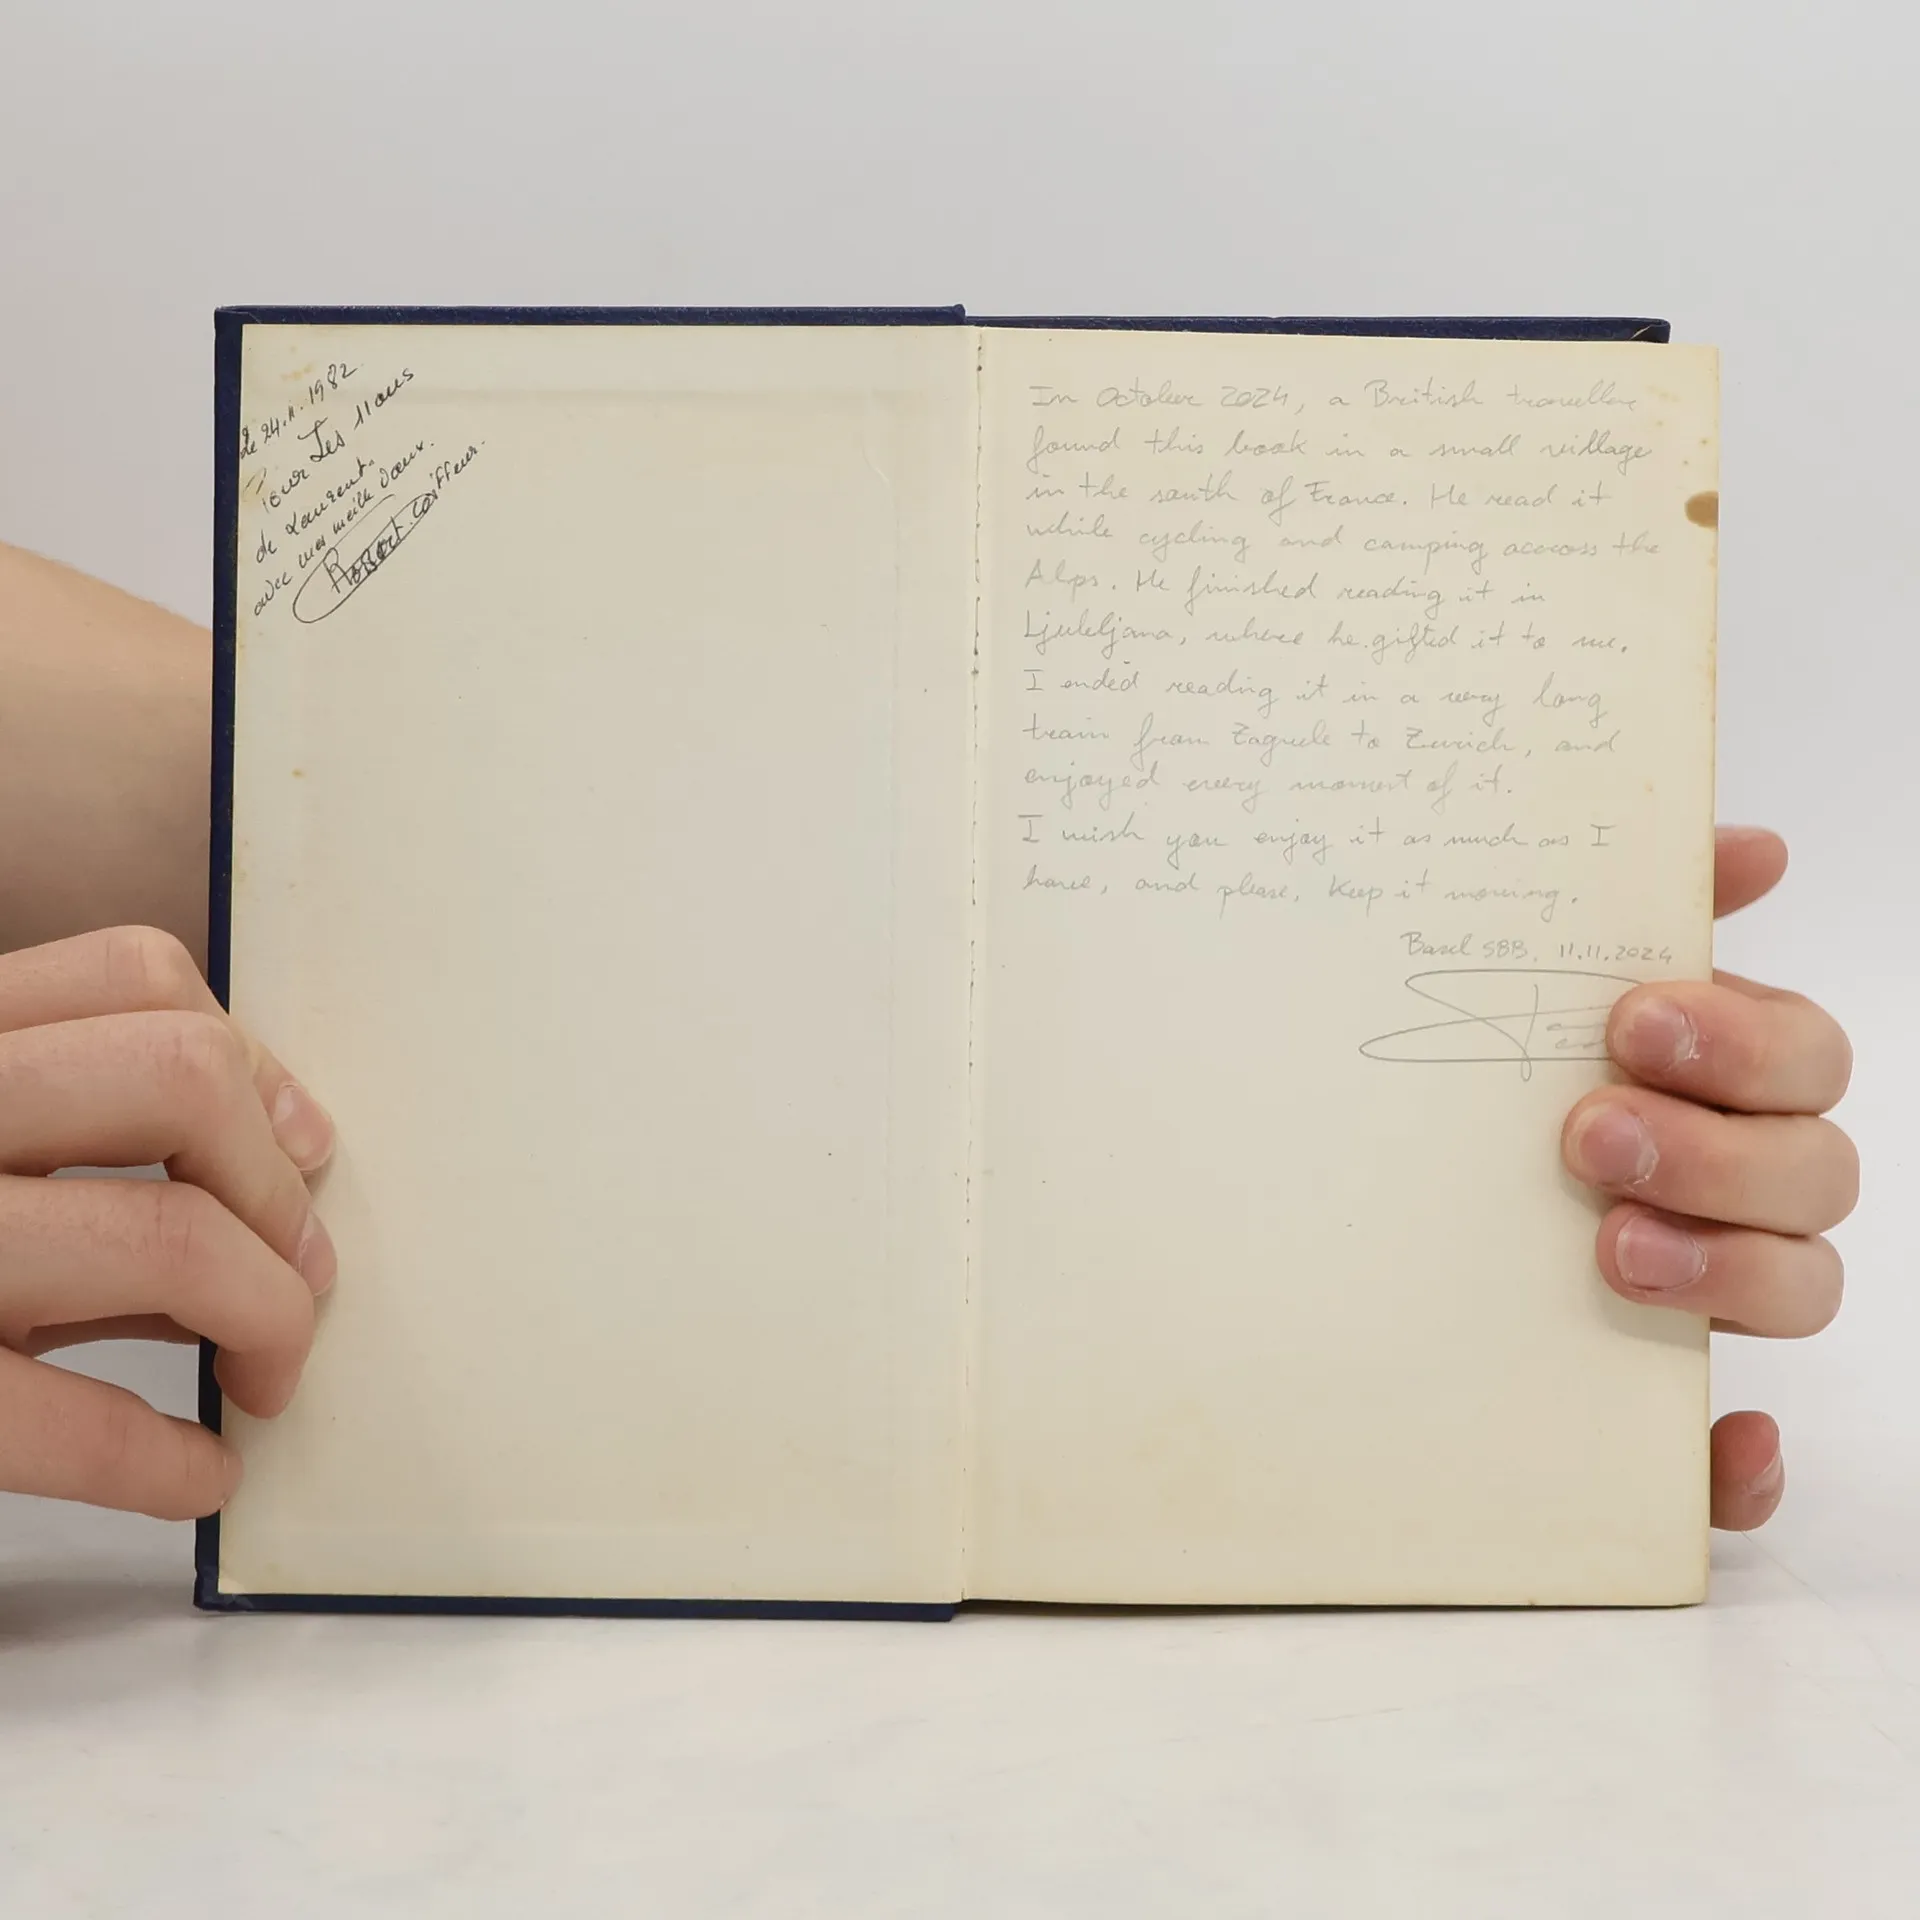 Le 24.11.1982
Pour Les 11 ans
de Laurent.
avec mes meill Vœux.
Robert. Coiffeur.
In October 2024, a British traveller
found this book in a small village
in the south of France. He read it
while cycling and camping accross the
Alps. He finished reading it in
Ljubljana, where he gifted it to me.
I ended reading it in a very long
train from Zagreb to Zurich, and
enjoyed every moment of it.
I wish you enjoy it as much as I
have, and please, keep it moving.
Basel SBB, 11.11.2024